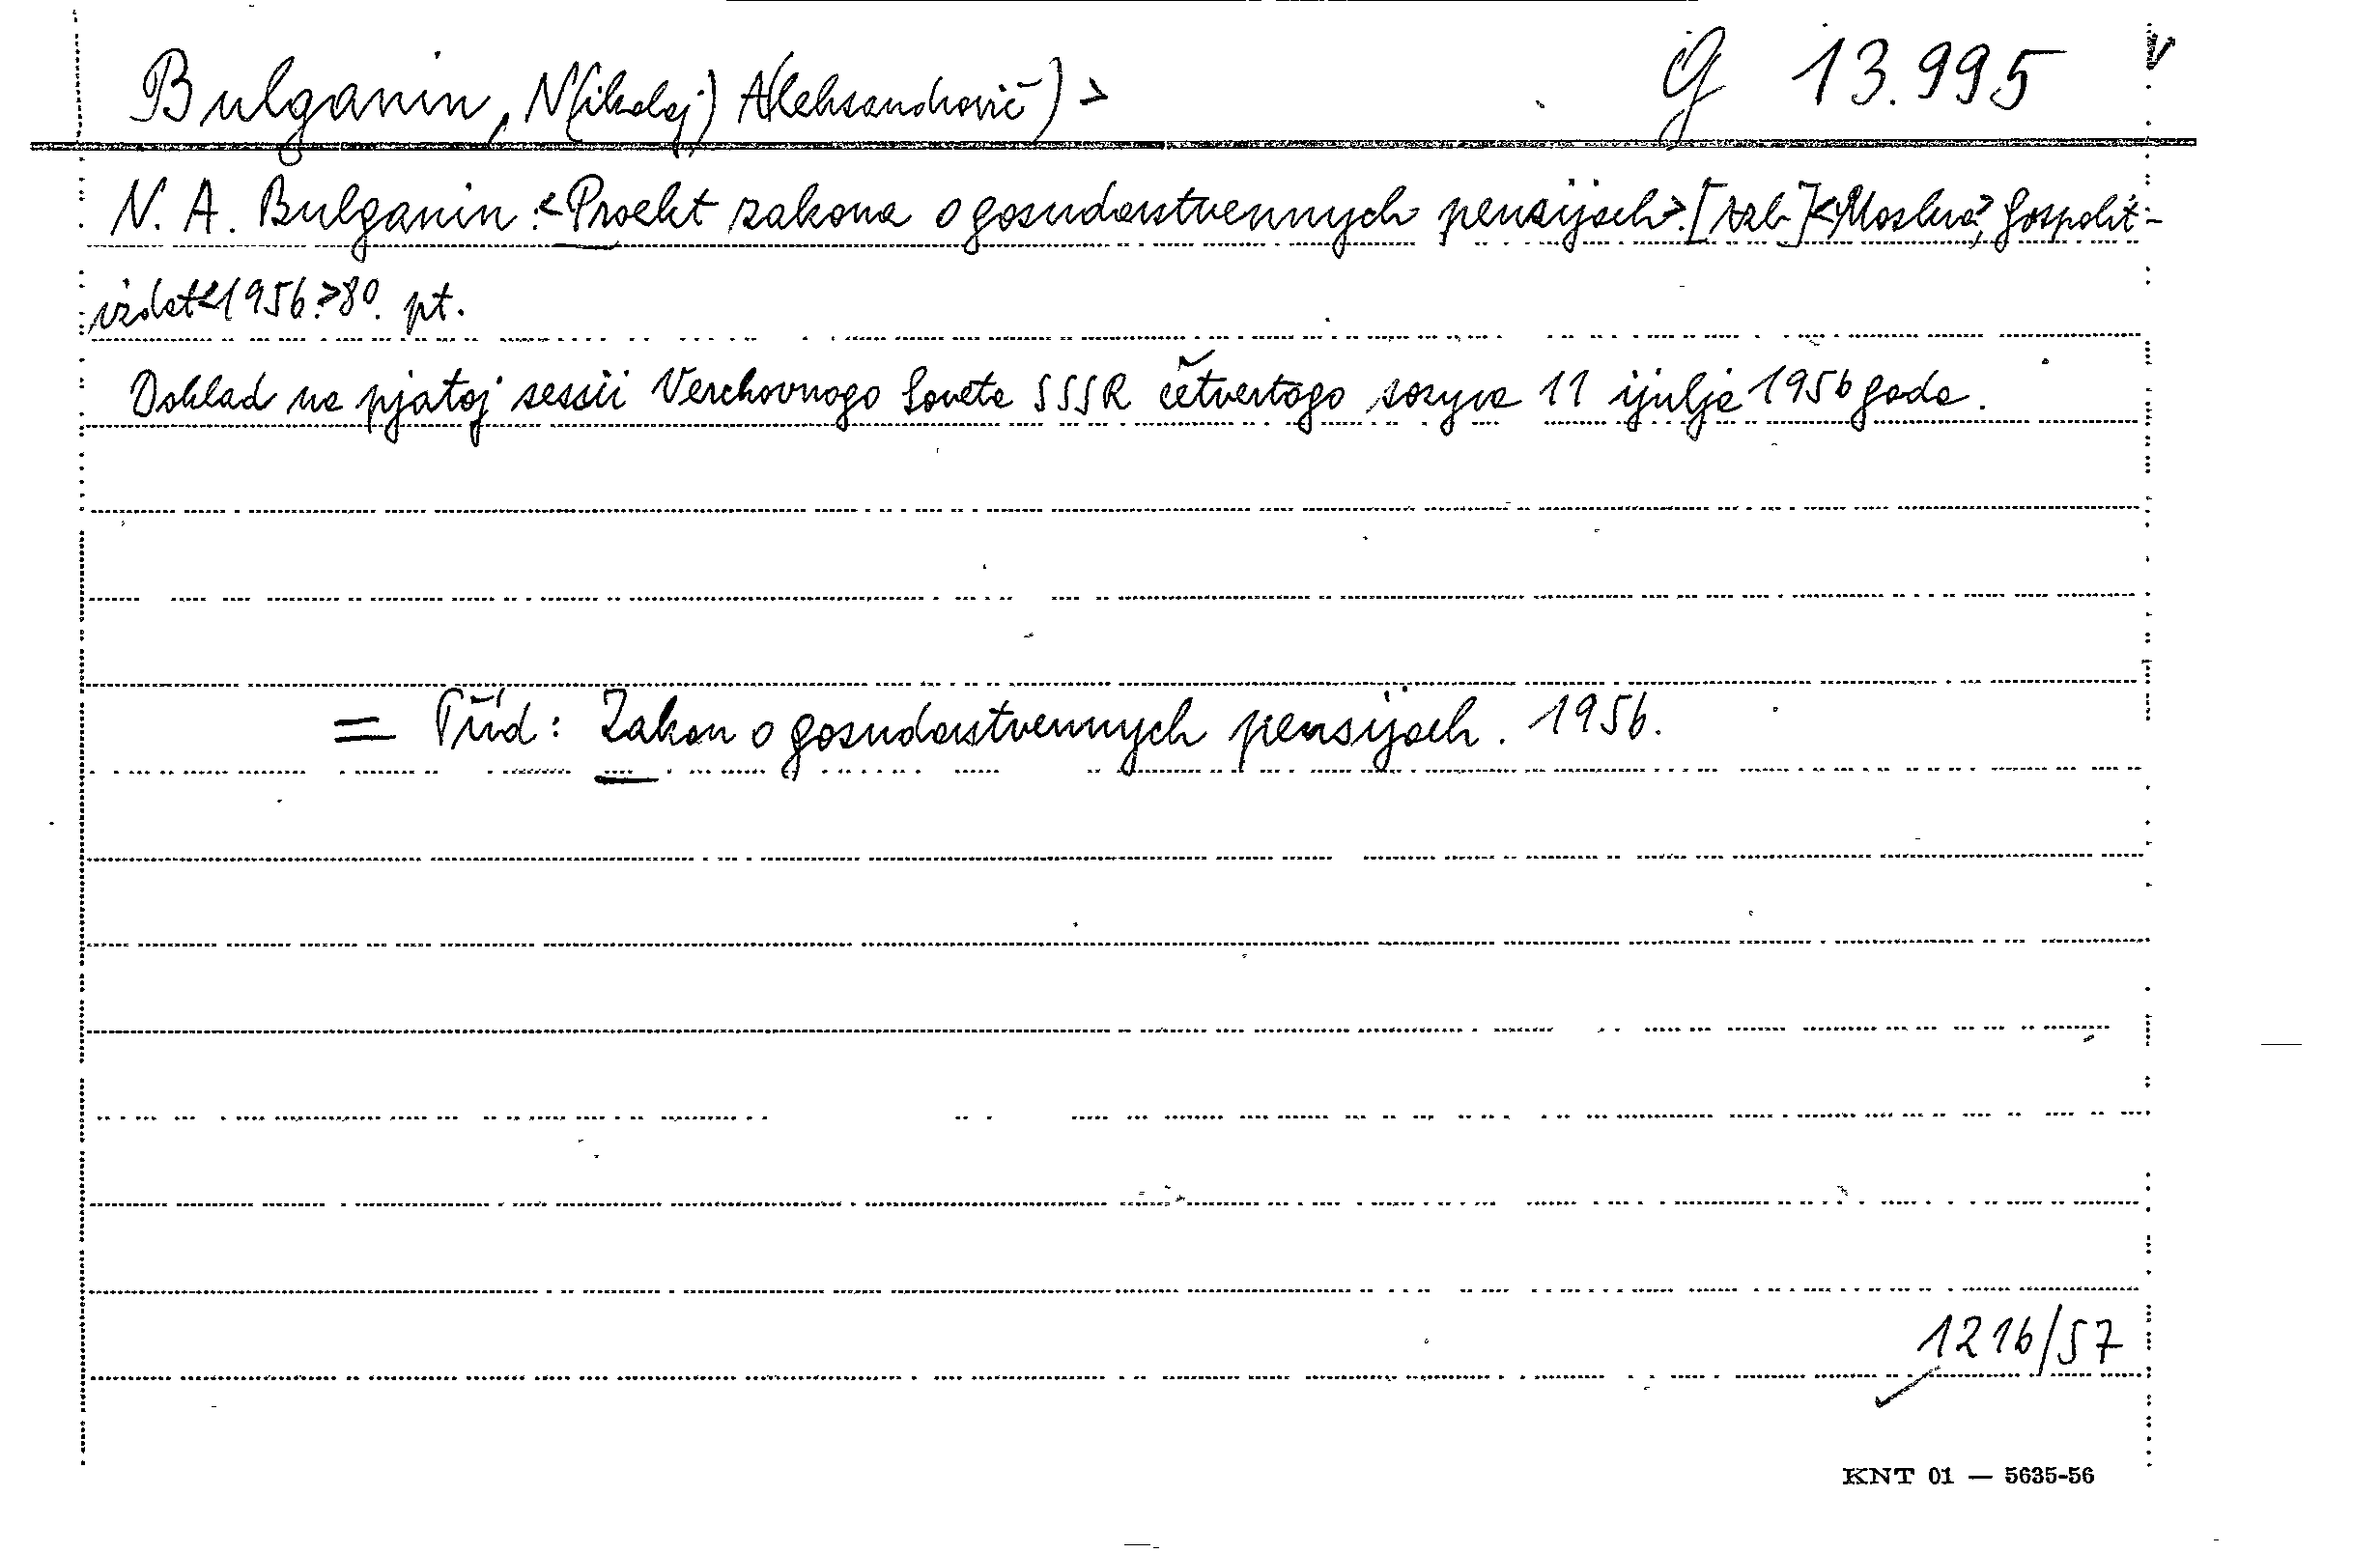 Bulganin, N(ikolaj) A(leksandrovič) > G 13.995
N. A. Bulganin: <Proekt zakona o gosudarstvennych pensijach>. [Azb.] <Moskva>, Gospolit-
izdat <1956.> 8°. pt.
Doklad na pjatoj sessii Verchovnogo Soveta SSSR četvertogo sozyva 11 ijulja 1956 goda.
= Příd: Zakon o gosudarstvennych pensijach. 1956.
1216/57
KNT 01 — 5635-56